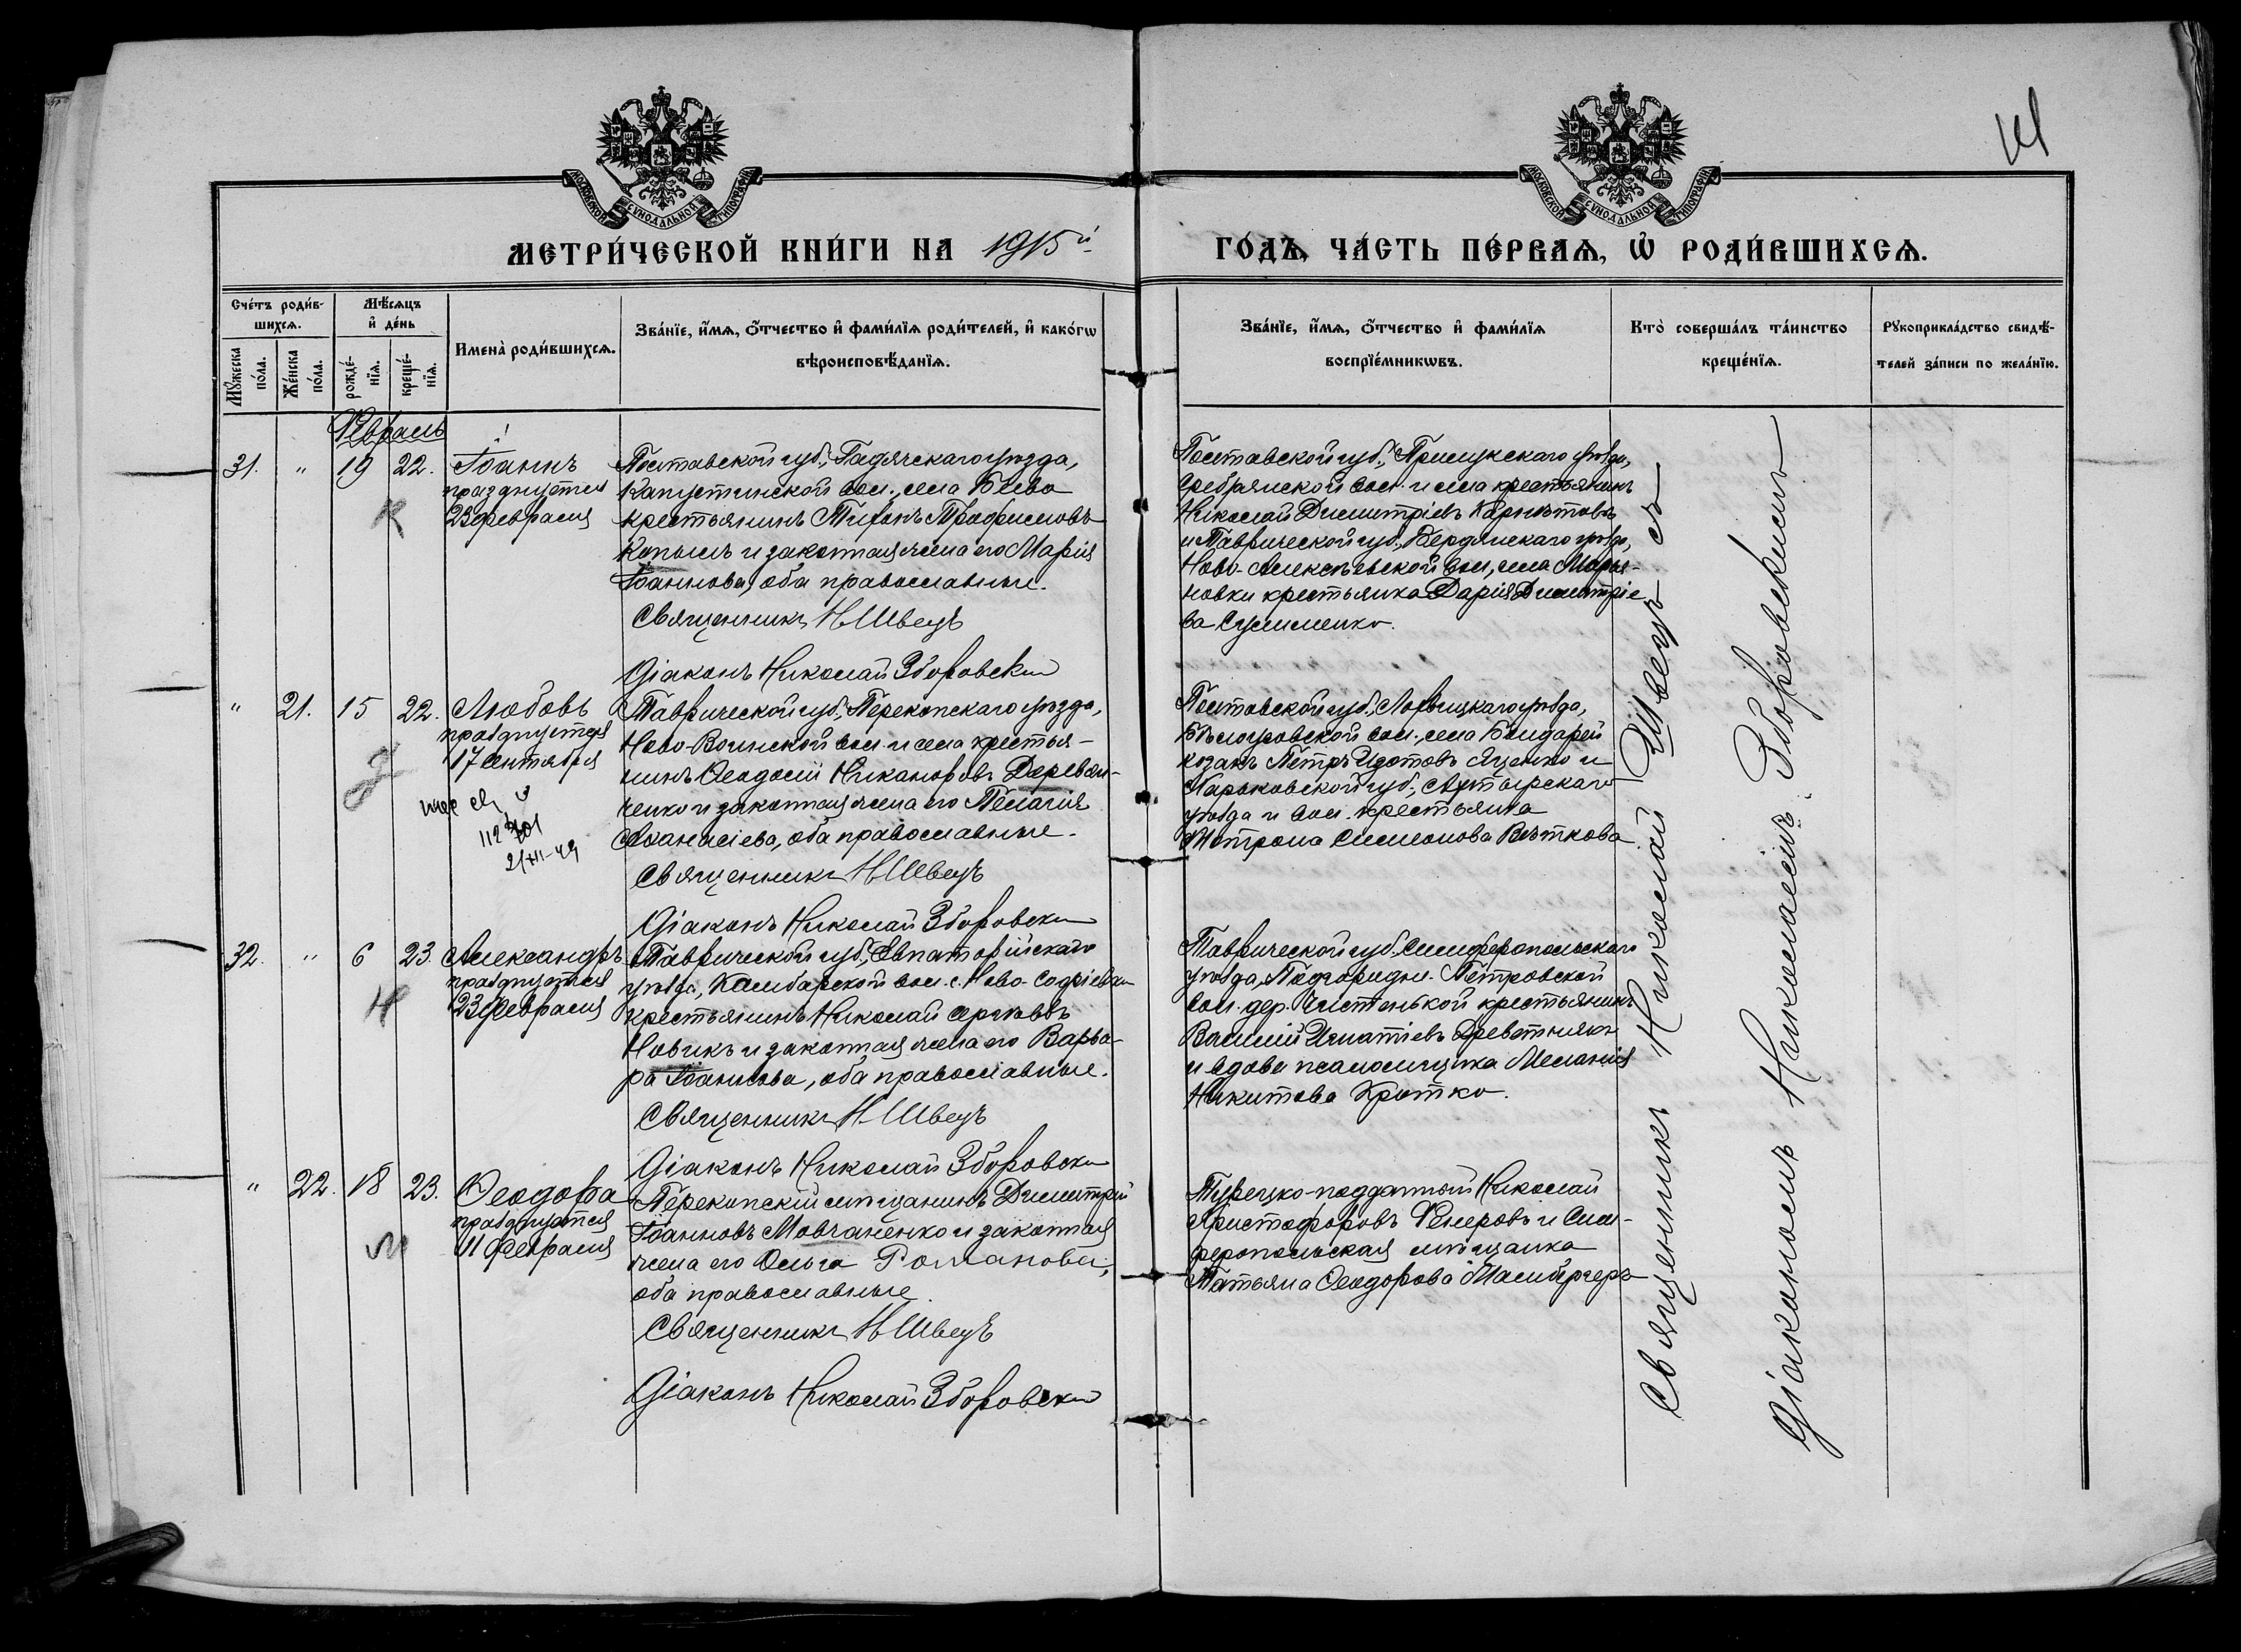 МОСКОВСКОЙ СѴНОДАЛЬНОЙ ТИПОГРАФІИ
МОСКОВСКОЙ СѴНОДАЛЬНОЙ ТИПОГРАФІИ
МЕТРИ́ЧЕСКОЙ КНИ́ГИ НА 1915й
ГО́ДЪ, ЧА́СТЬ ПЕ́РВАѦ, Ѡ҆ РОДИ́ВШИХСѦ.
Сче́тъ роди́в-
шихсѧ.
Мꙋ́жеска
по́ла.
Же́нска
по́ла.
Мѣ́сѧцъ
и҆ де́нь
рожде́-
нїѧ.
креще́-
нїѧ.
Имена̀ роди́вшихсѧ.
Зва́нїе, и҆́мѧ, ѻ҆́тчество и҆ фами́лїѧ роди́телей, и҆ како́гѡ
вѣроисповѣ́данїѧ.
Зва́нїе, и҆́мѧ, ѻ҆́тчество и҆ фами́лїѧ
воспрїе́мникѡвъ.
Кто̀ соверша́лъ та́инство
креще́нїѧ.
Рꙋкоприкла́дство свидѣ́-
телей за́писи по жела́нїю.
Февраль
31. " 19 22.
Іоаннъ
празднуется
23 февраля
Полтавской губ., Гадячскаго уѣзда,
Капустинской вол., села Беева
крестьянинъ Тихонъ Трофимовъ
Копылъ и законная жена его Марія
Іоаннова, оба православные.
Священникъ Н Швецъ
Діаконъ Николай Зборовски
Полтавской губ., Прилукскаго уѣзда,
Сребрянской вол. и села крестьянинъ
Николай Димитріевъ
и Таврической губ., Бердянскаго уѣзда,
Ново-Алексѣевской вол., села Марья-
новки крестьянка Дарія Димитріе
ва Сулименко.
" 21. 15 22.
Любовь
празднуется
17 Сентября
21 XII-49
Таврической губ., Перекопскаго уѣзда,
Ново-Воинской вол. и села крестья-
нинъ Ѳеодосій Никаноровъ Деревян-
ченко и законная жена его Пелагія
Аѳанасіева, оба православные.
Священникъ Н Швецъ
Діаконъ Николай Зборовски
Полтавской губ., Лохвицкаго уѣзда,
Бѣлоусовской вол., села Бондарей
козакъ Петръ Яценко и
Харьковской губ., Ахтырскаго
уѣзда и вол. крестьянка
Матрона Симеонова Вѣткова
32. " 6 23.
Александръ
празднуется
23 февраля
Таврической губ., Евпаторійскаго
уѣзда, Камбарской вол. с. Ново-Софіевки
крестьянинъ Николай Сергіевъ
Новикъ и законная жена его Варва-
ра Іоаннова, оба православные.
Священникъ Н Швецъ
Діаконъ Николай Зборовски
Таврической губ. Симферопольскаго
уѣзда, Подгородн. Петровской
вол. дер. Чистенькой крестьянинъ
Василій Игнатіевъ Древетнякъ
и вдова псаломщика Меланія
Никитова Кротко.
" 22. 18 23.
Ѳеодора
празднуется
11 февраля
Перекопскій мѣщанинъ Димитрій
Іоанновъ Мовчаненко и законная
жена его Ольга Романова,
оба православные.
Священникъ Н Швецъ
Діаконъ Николай Зборовски
Турецко-подданный Николай
Христофоровъ Фенеровъ и Сим-
феропольская мѣщанка
Татьяна Ѳеодорова
Священникъ Николай Швецъ съ
Діакономъ Николаемъ Зборовскимъ